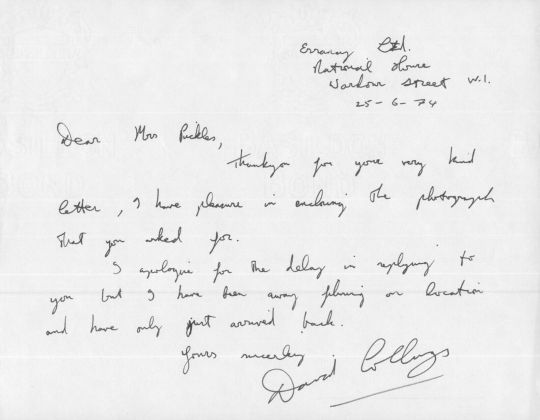 Erranay Ltd.
National House
Wardour Street W.1.
25-6-74
Dear Mrs Pickles,
Thankyou for your very kind
letter, I have pleasure in enclosing the photograph
that you asked for.
I apologise for the delay in replying to
you but I have been away filming on location
and have only just arrived back.
Yours sincerley
David Collings